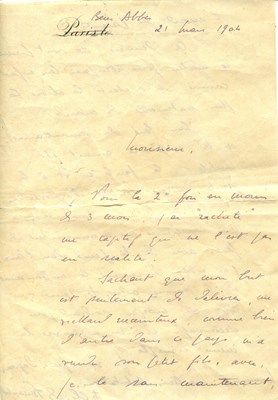 Beni Abbès
Paris le 21 mars 1904
Monsieur,
Pour la 2e fois en moins
de 3 mois, j'ai "racheté"
un captif qui ne l'est pas
en réalité.
Sachant que mon but
est seulement de délivrer, un
maintenant comme bien
d'autres dans ce pays, m'a
vendu son petit fils, avec,
je le sais maintenant,